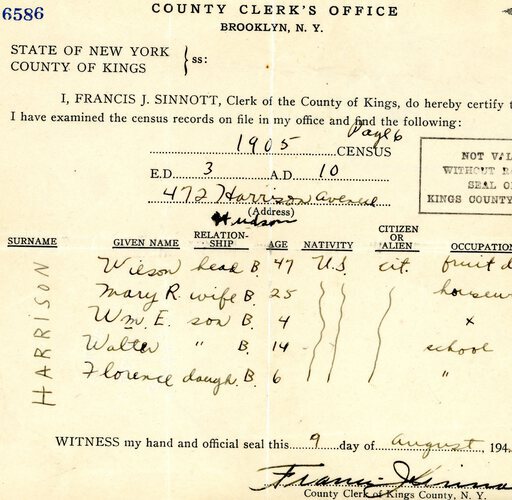 6586
COUNTY CLERK'S OFFICE
BROOKLYN, N. Y.
STATE OF NEW YORK
COUNTY OF KINGS
ss:
I, FRANCIS J. SINNOTT, Clerk of the County of Kings, do hereby certify t
I have examined the census records on file in my office and find the following:
Page 6
1905 CENSUS
E.D. 3 A.D. 10
472 Harrison Avenue
(Address)
Hudson
NOT VAL
WITHOUT R
SEAL O
KINGS COUNTY
SURNAME GIVEN NAME RELATION-SHIP AGE NATIVITY CITIZEN OR ALIEN OCCUPATION
HARRISON
Wilson head B. 47 U.S. cit. fruit d
Mary R. wife B. 25 housew
Wm. E. son B. 4 x
Walter " B. 14 school
Florence daugh. B. 6 "
WITNESS my hand and official seal this 9 day of August, 194
Francis J Sinno
County Clerk of Kings County, N. Y.